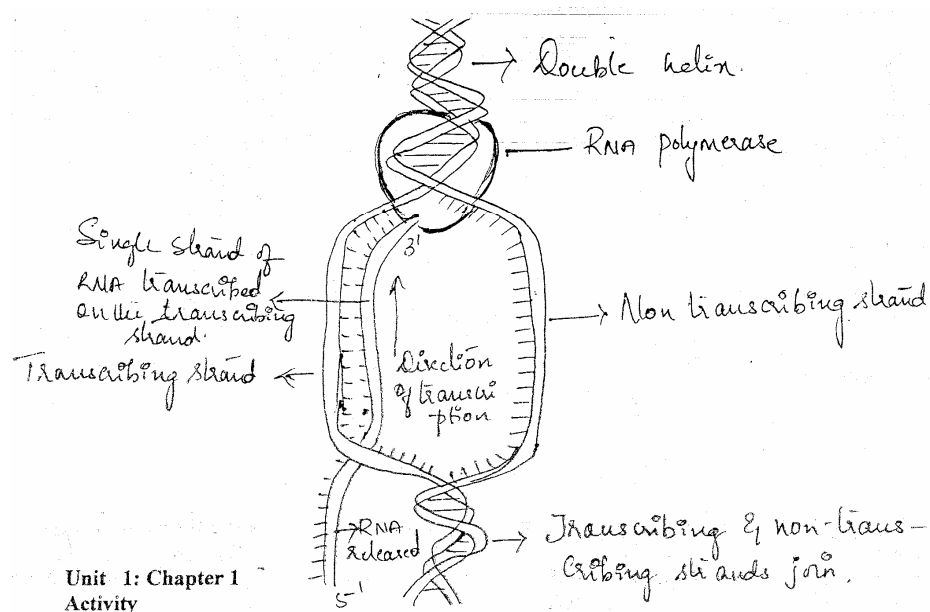 Double helix.
RNA polymerase
3'
Single strand of
RNA transcribed
on the transcribing
strand.
Transcribing strand
Direction
of transcri
ption
Non transcribing strand
RNA
released
5'
Transcribing & non-trans-
cribing strands join.
Unit 1: Chapter 1
Activity